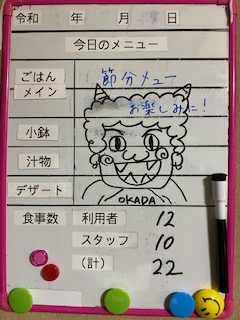 令和 年 月 日
今日のメニュー
ごはん
メイン
節分メニュー
お楽しみに!
小鉢
汁物
デザート
OKADA
食事数 利用者 12
スタッフ 10
(計) 22